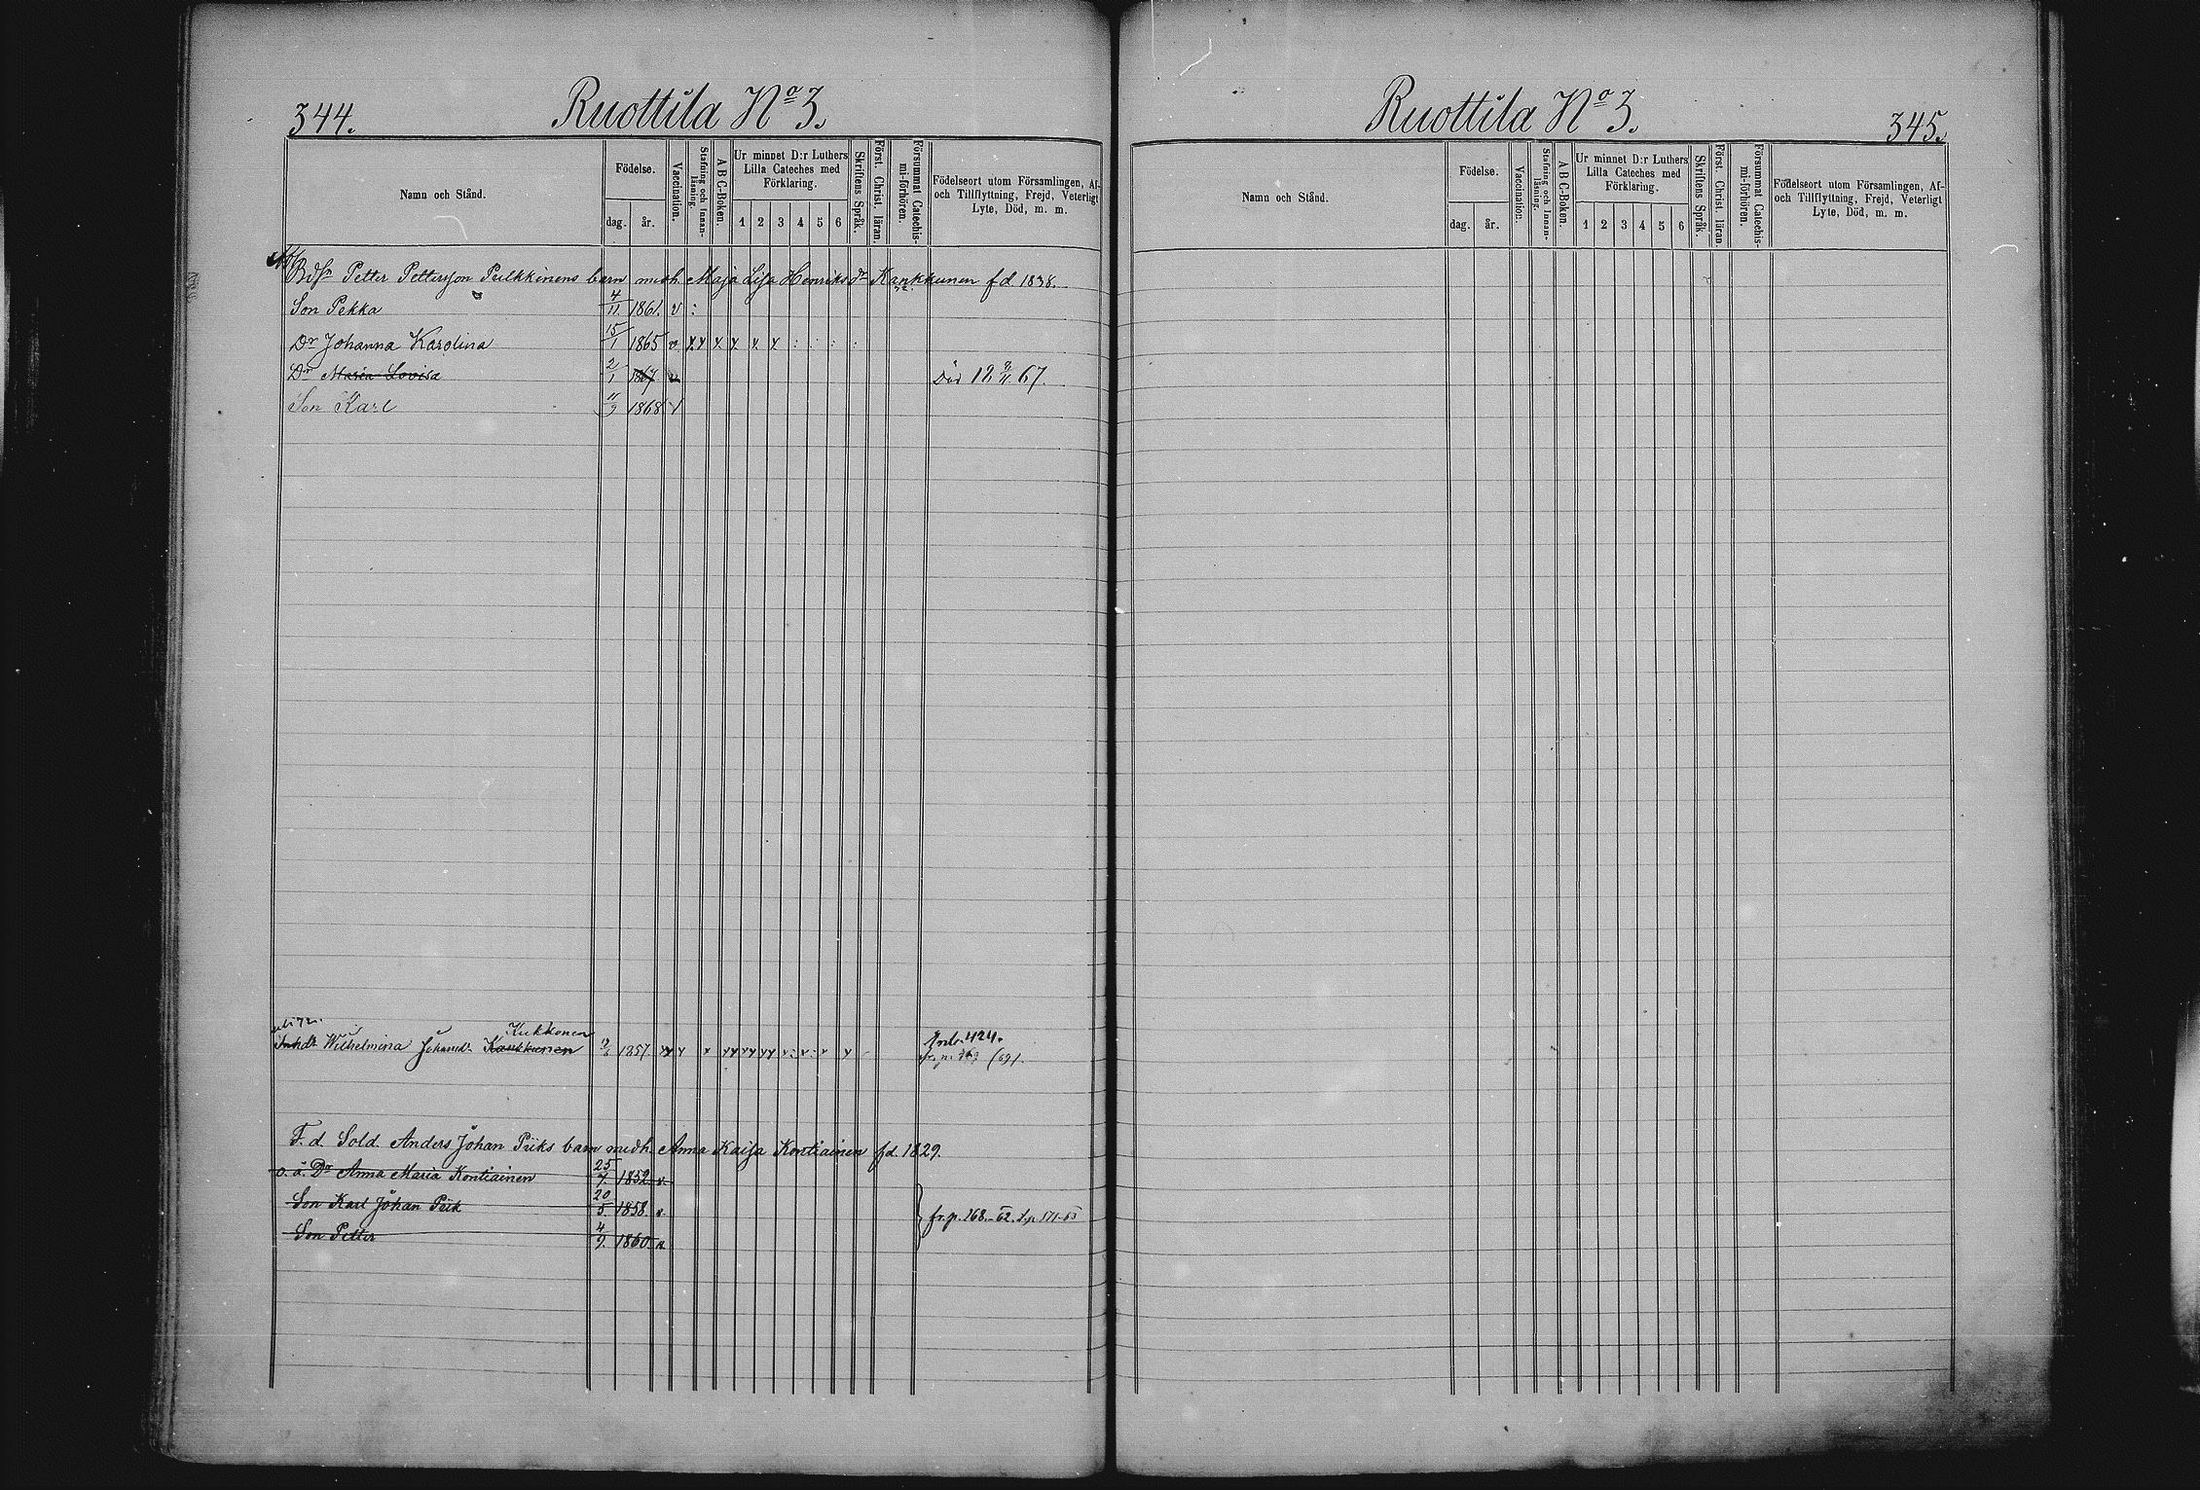 344.
Ruottila No 3.
Namn och Stånd.
Födelse.
dag. år.
Vaccination.
Stafning och Innan-läsning.
A B C-Boken.
Ur minnet D:r Luthers Lilla Cateches med Förklaring.
1 2 3 4 5 6
Skriftens Språk.
Först. Christ. läran.
Försummat Catechis-mi-förhören.
Födelseort utom Församlingen, Af- och Tillflyttning, Frejd, Veterligt Lyte, Död, m. m.
Petter Pettersson Pulkkinens barn medh. Maja Lisa Henriksdr Kankkunen f.d 1838.
Son Pekka 4/11 1861. v :
Dr Johanna Karolina 15/1 1865 v
Dr Maria Lovisa 2/1 1867 v Död 67.
Son Karl 11/9 1868 v
Kukkonen
Wilhelmina Johansdr Kankkunen 1857
424.
F. d. Sold. Anders Johan Piiks barn medh. Anna Kaisa Kontiainen f.d. 1829.
o. ä. Dr Anna Maria Kontiainen 25/7. 1852 v.
Son Karl Johan Piik 20/5. 1858. v.
fr. p. 268.-62.
Son Petter 4/9. 1860 v
Ruottila No 3.
345.
Namn och Stånd.
Födelse.
dag. år.
Vaccination.
Stafning och Innan-läsning.
A B C-Boken.
Ur minnet D:r Luthers Lilla Cateches med Förklaring.
1 2 3 4 5 6
Skriftens Språk.
Först. Christ. läran.
Försummat Catechis-mi-förhören.
Födelseort utom Församlingen, Af- och Tillflyttning, Frejd, Veterligt Lyte, Död, m. m.